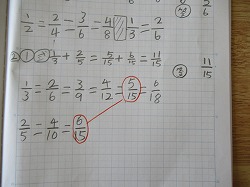 1/2 = 2/4 = 3/6 = 4/8 1/3 = 2/6
2/6
② ① 1/3 + 2/5 = 5/15 + 6/15 = 11/15
11/15
1/3 = 2/6 = 3/9 = 4/12 = 5/15 = 6/18
2/5 = 4/10 = 6/15